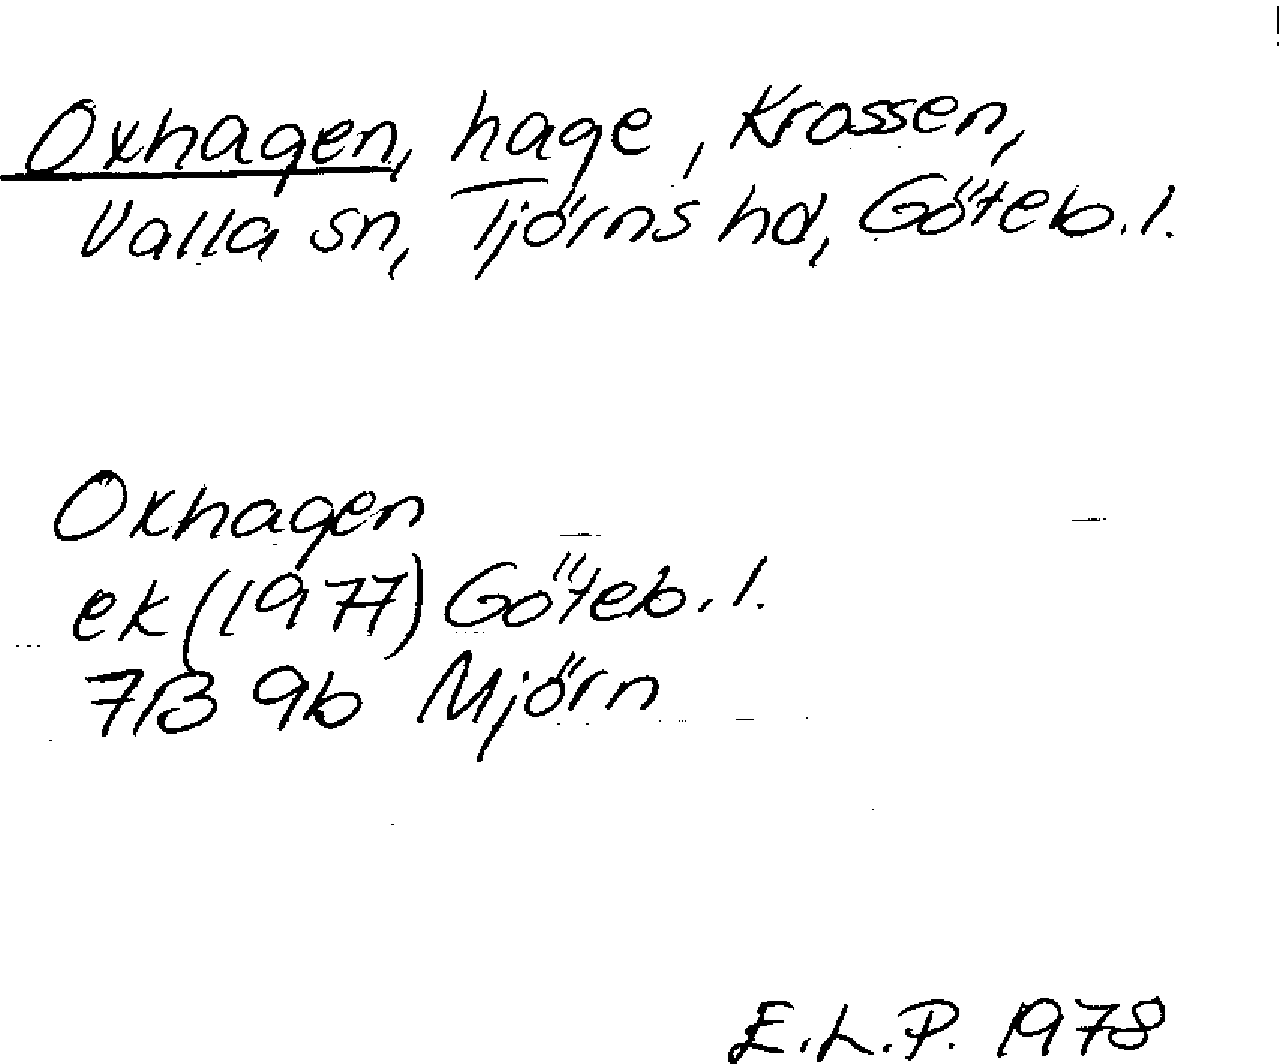 Oxhagen, hage, Krossen,
Valla sn, Tjörns hd, Göteb.l.
Oxhagen
ek (1977) Göteb.l.
7B 9b Mjörn
E.L.P. 1978